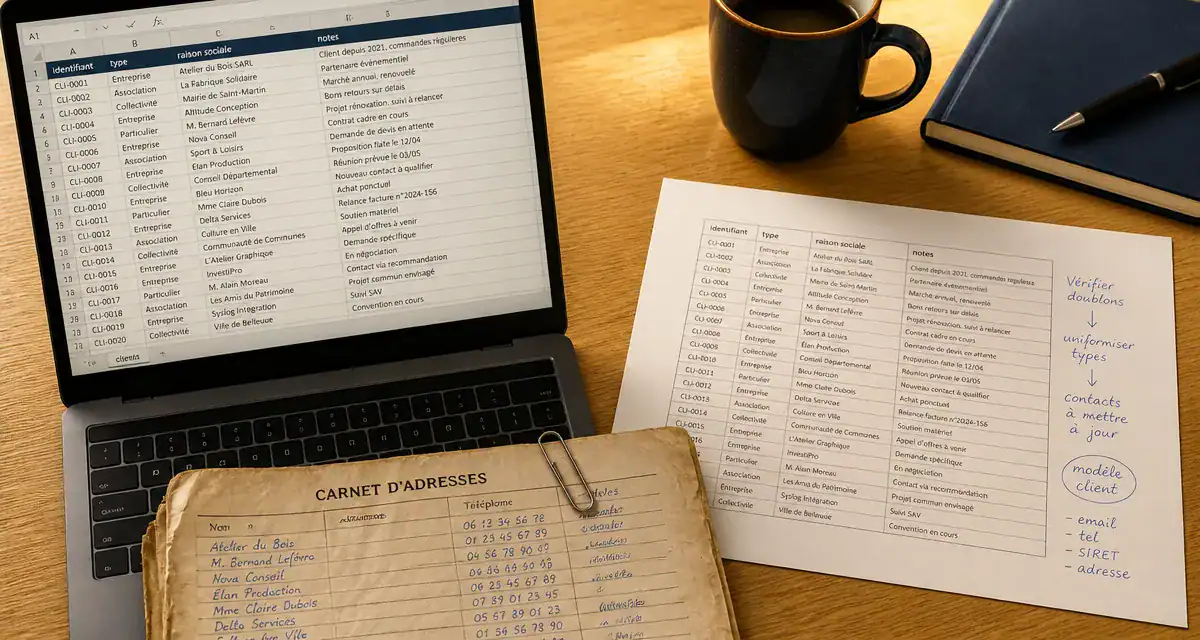 A1 fx
A B C
identifiant type raison sociale notes
CLI-0001 Entreprise Atelier du Bois SARL Client depuis 2021, commandes régulières
CLI-0002 Association La Fabrique Solidaire Partenaire évènementiel
CLI-0003 Collectivité Mairie de Saint-Martin Marché annual, renouvelé
CLI-0004 Entreprise Altitude Conception Bons retours sur délais
CLI-0005 Particulier M. Bernard Lefèvre Projet rénovation, suivi à relancer
CLI-0006 Entreprise Nova Conseil Contrat cadre en cours
CLI-0007 Association Sport & Loisirs Demande de devis en attente
CLI-0008 Entreprise Élan Production Proposition flate le 12/04
CLI-0009 Collectivité Conseil Départemental Réunion prévue le 03/05
CLI-0010 Entreprise Bleu Horizon Nouveau contact à qualifier
CLI-0011 Particulier Mme Claire Dubois Achat ponctuel
CLI-0012 Entreprise Delta Services Relance facture n°2024-156
CLI-0013 Association Culture en Ville Soutien matériel
CLI-0014 Collectivité Communauté de Communes Appel d'offres à venir
CLI-0015 Entreprise L'Atelier Graphique Demande spécifique
CLI-0016 Particulier InvestiPro En négociation
CLI-0017 Association M. Alain Moreau Contact via recommandation
CLI-0018 Entreprise Les Amis du Patrimoine Projet commun envisagé
CLI-0019 Collectivité Syslog Intégration Suivi SAV
CLI-0020 Ville de Belleuue Convention en cours
clients
identifiant type raison sociale notes
CLI-0001 Entreprise Atelier du Bois SARL Client depuis 2021, commandes
CLI-0002 Association La Fabrique Solidaire Partenaire évènementiel
CLI-0003 Collectivité Mairie de Saint Martin Marché annual, renouvelé
CLI-0004 Entreprise Altitude Conception Bons retours sur délais
CLI-0005 Particulier M. Bernard Lefèvre Projet rénovation, suivi à relancer
CLI-0006 Entreprise Nova Contrat cadre en cours
CLI-0007 Association Sport & Loisirs Demande de devis en attente
CLI-0008 Entreprise Élan Production Proposition le 12/04
Collectivité Conseil Départemental Réunion prévue le
Entreprise Bleu Horizon Nouveau contact à qualifier
CLI-0011 Particulier Mme Claire Dubois Achat ponctuel
CLI-0012 Entreprise Delta Relance facture n°2024-156
CLI-0013 Association Culture en Ville Soution matériel
CLI-0014 Collectivité Communauté de Communes Appel d'offres à venir
CLI-0015 Entreprise L'Atelier Graphique Demande spécifique
Particulier InvestiPro En négociation
Association M. Alain Moreau Contact via recommandation
Entreprise Les Amis du Patrimoine Projet commun envisagé
Collectivité Syslog Intégration Suivi SAV
Ville de Belleuue Convention en cours
Vérifier
doublons
↓
uniformiser
types
↓
contacts
à mettre
à jour
modèle
client
- email
- tel
- SIRET
- adresse
CARNET D'ADRESSES
Nom Téléphone
Atelier du Bois 06 12 34 56 78
M. Bernard Lefèvre 01 23 45 67 89
Nova Conseil 04 56 78 90
Élan Production
Mme Claire Dubois 06 25 45 67 89
Delta Services 07 89 01 23 45
Ville 05 67 89 01 23
01 56 56 78 90